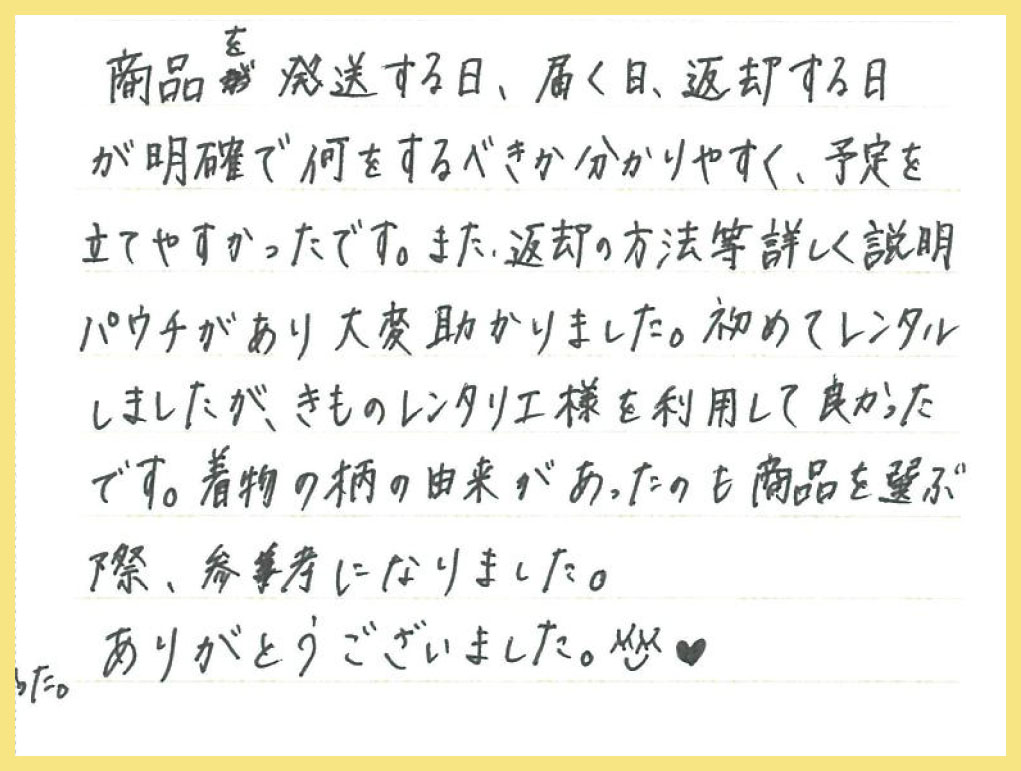 商品を発送する日、届く日、返却する日
が明確で何をするべきか分かりやすく、予定を
立てやすかったです。また、返却の方法等詳しく説明
パウチがあり大変助かりました。初めてレンタル
しましたが、きものレンタリエ様を利用して良かった
です。着物の柄の由来があったのも商品を選ぶ
際、参考になりました。
ありがとうございました。
った。